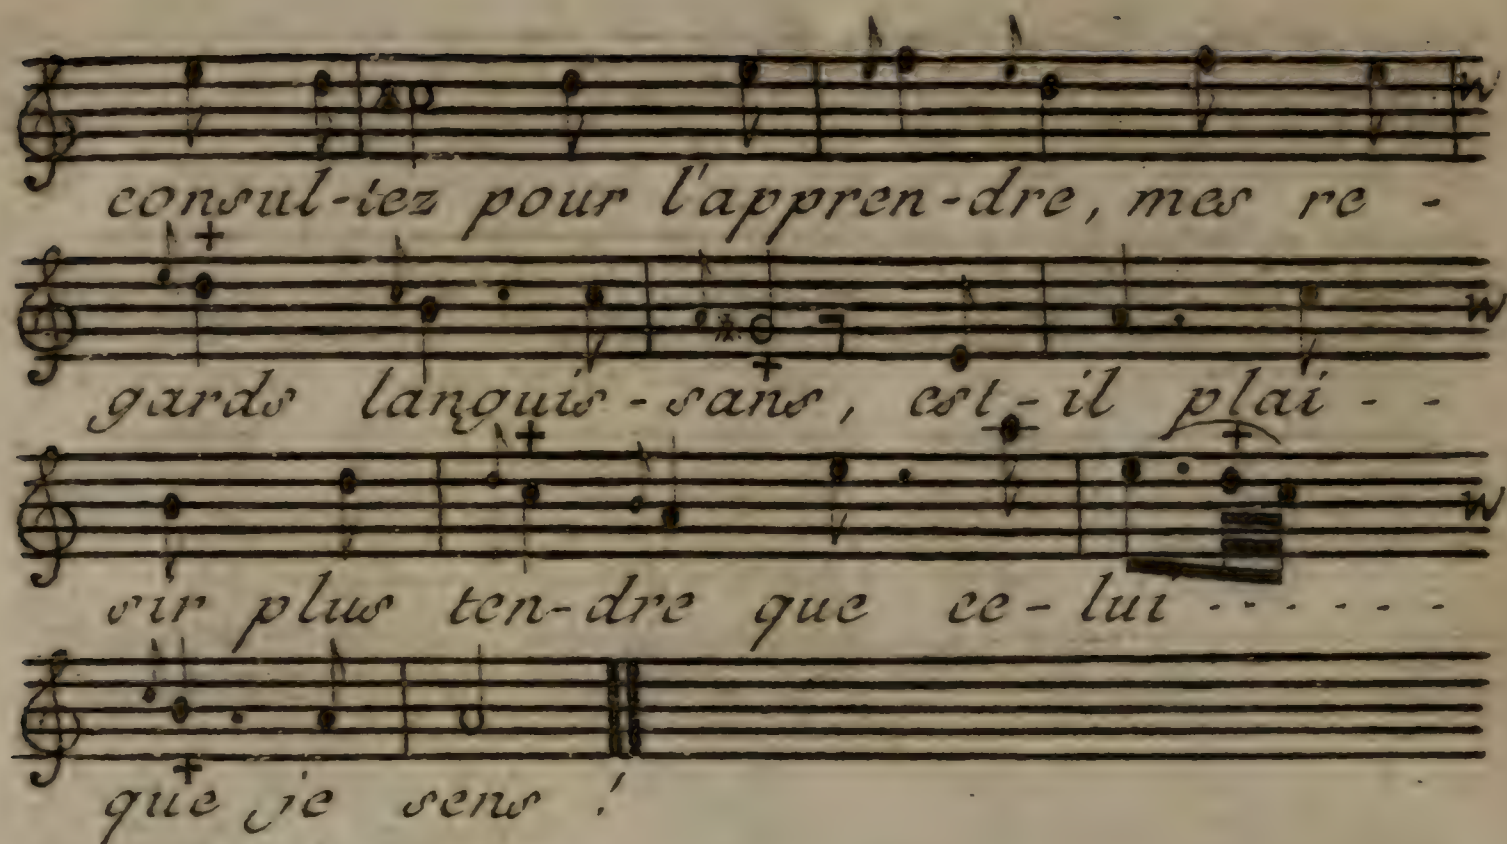 consul-tez pour l'appren-dre, mes re -
gards languis-sans, est-il plai - -
sir plus ten-dre que ce-lui . . . . . . - - -
que je sens !